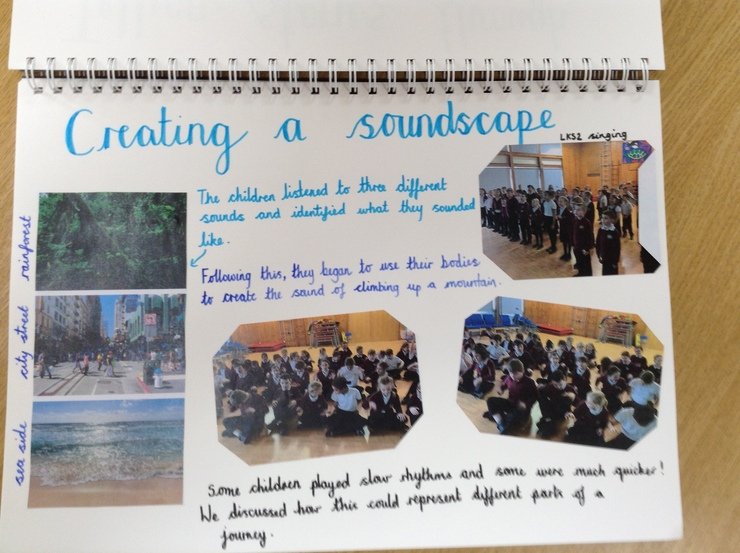 Creating a soundscape
LKS2 singing
The children listened to three different
sounds and identified what they sounded
like.
rainforest
city street
sea side
Following this, they began to use their bodies
to create the sound of climbing up a mountain.
Some children played slow rhythms and some were much quicker!
We discussed how this could represent different parts of a
journey.